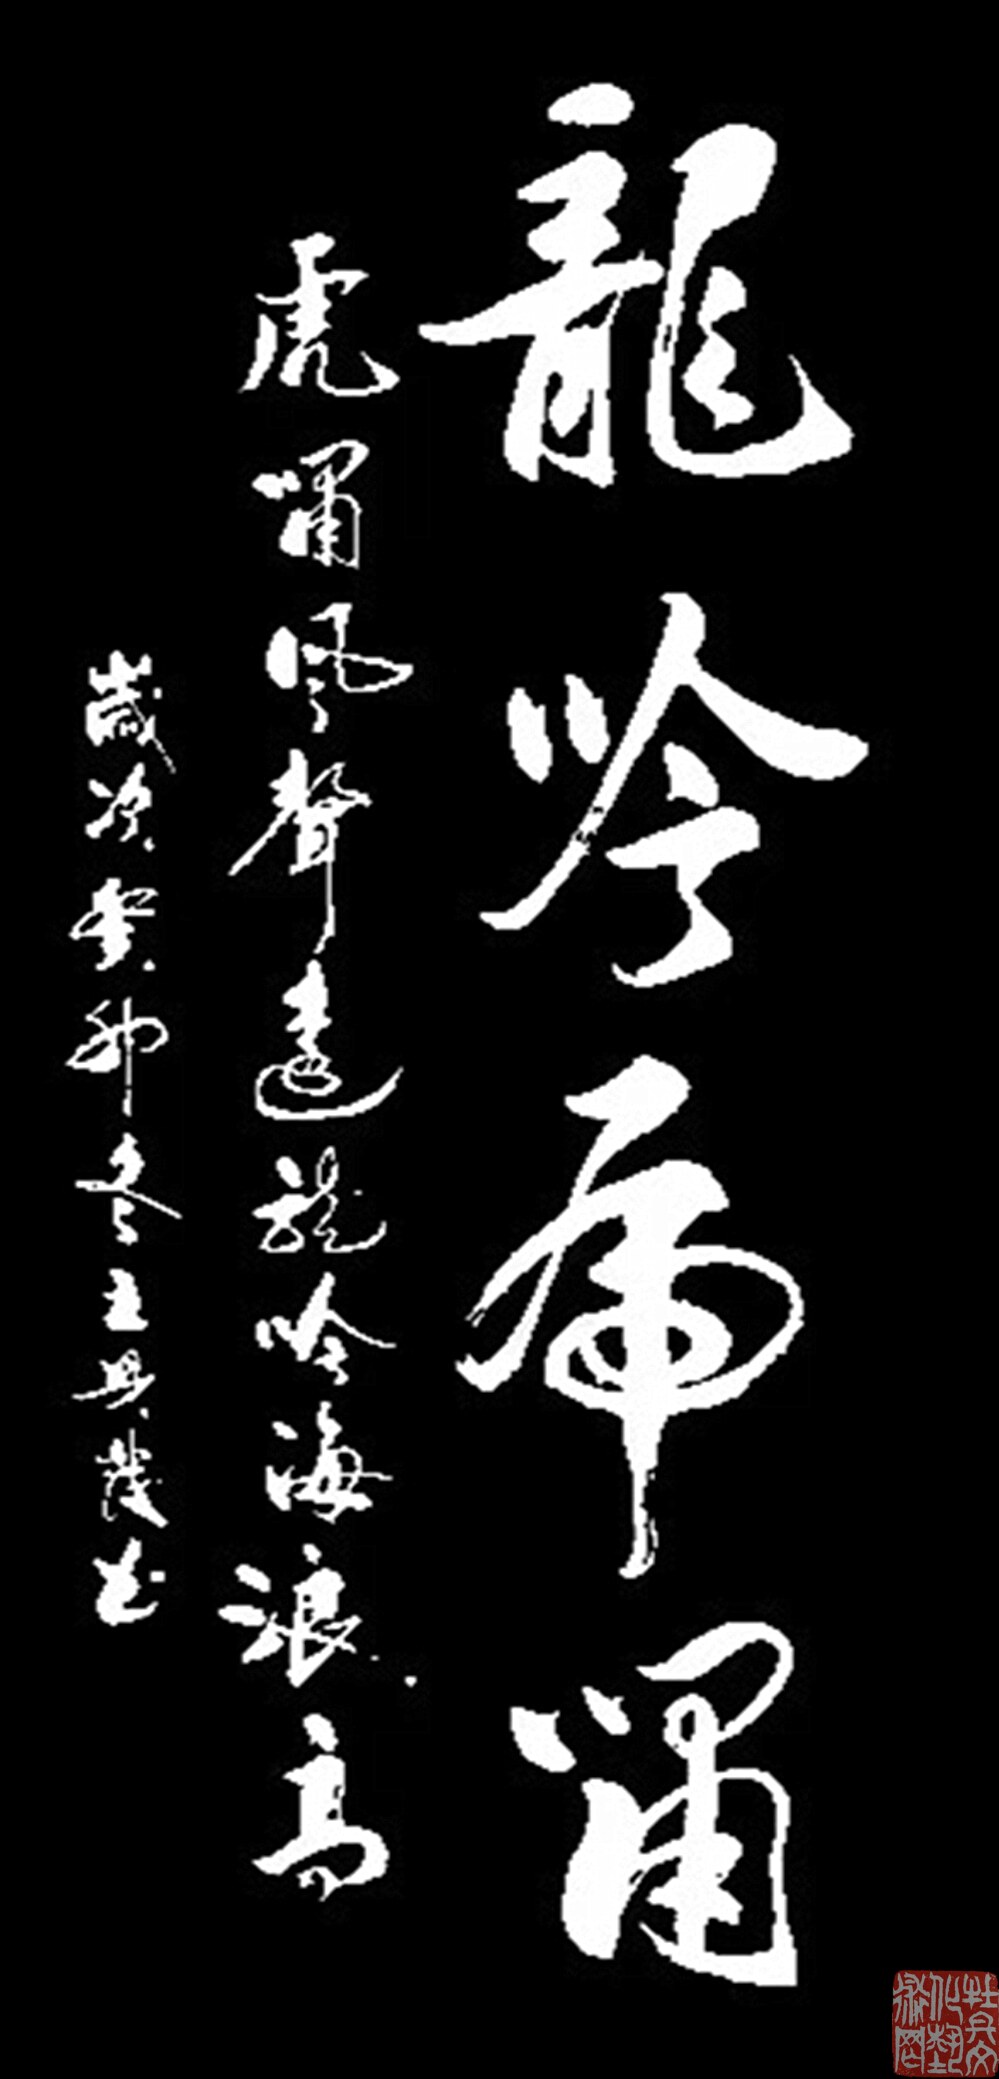 龍吟虎嘯
虎嘯風聲遠龍吟海浪高
歲次癸卯冬